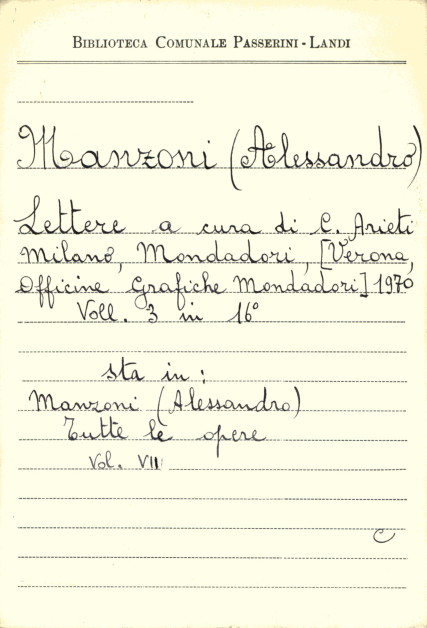 BIBLIOTECA COMUNALE PASSERINI - LANDI
Manzoni (Alessandro)
Lettere a cura di C. Arieti
Milano, Mondadori, [Verona,
Officine Grafiche Mondadori] 1970
Voll. 3 in 16°
sta in:
Manzoni (Alessandro)
Tutte le opere
Vol. VII
C